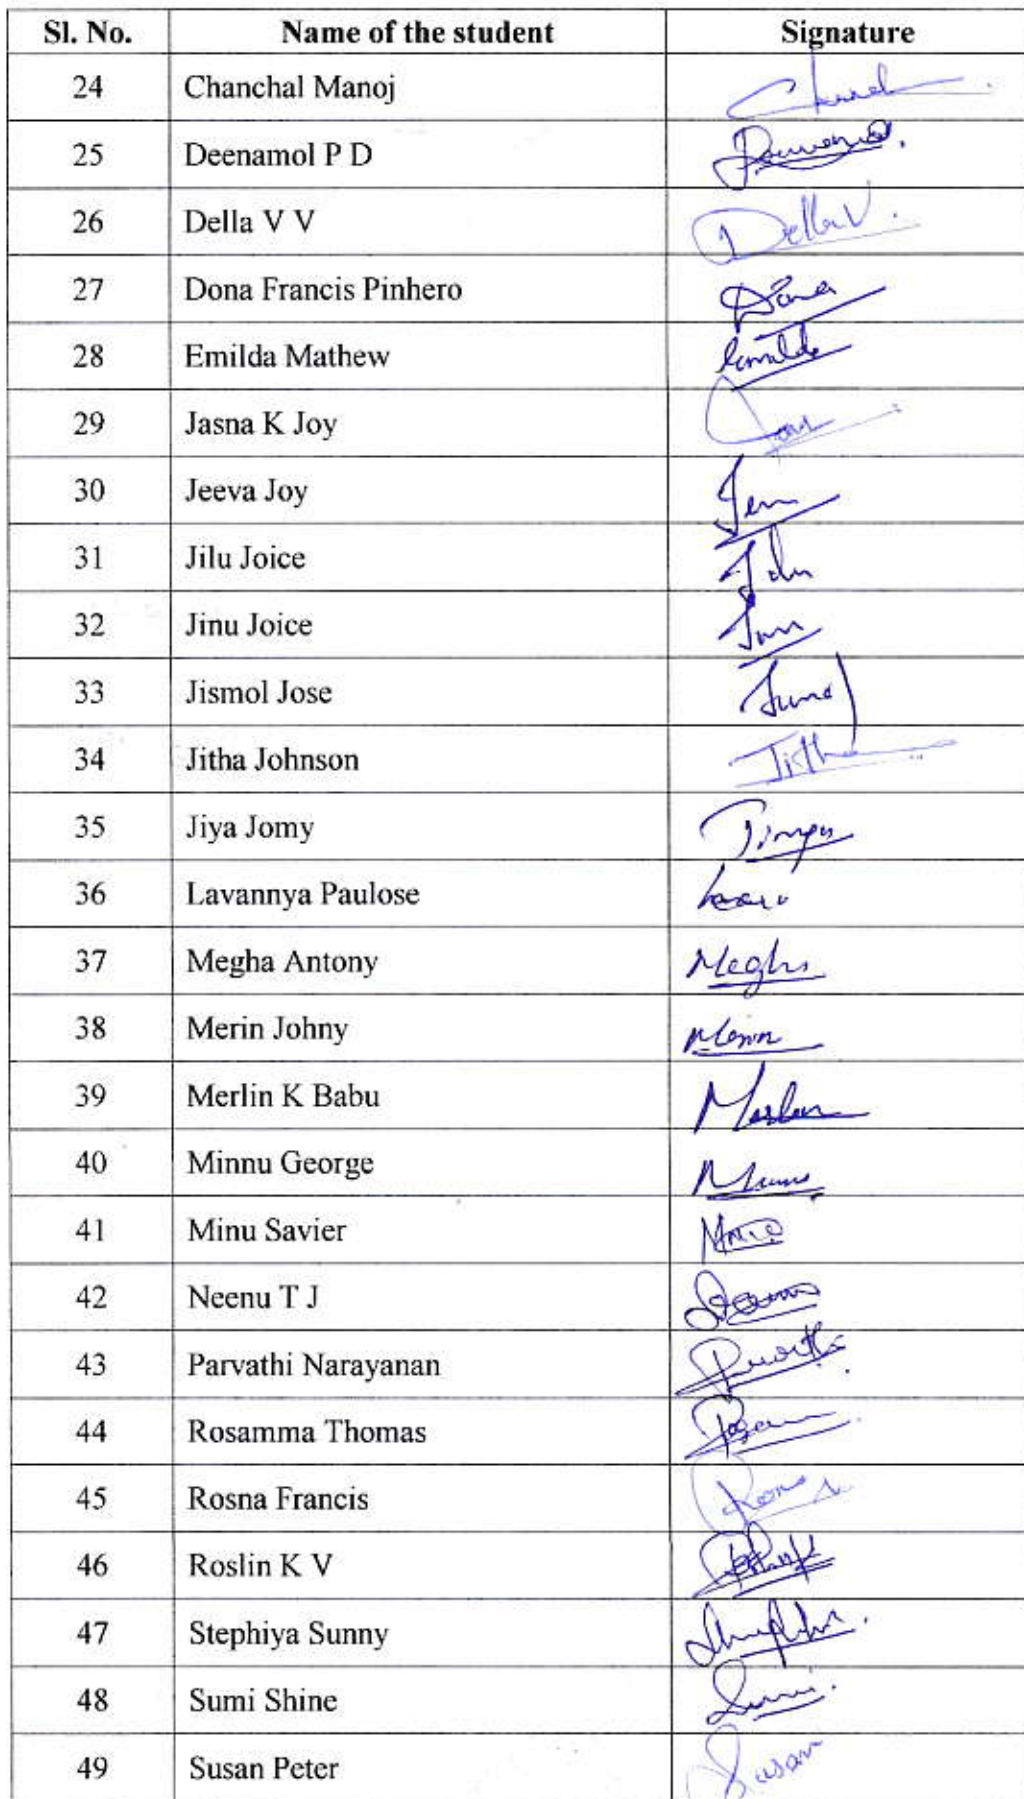 Sl. No. Name of the student Signature
24 Chanchal Manoj
25 Deenamol P D
26 Della V V Della V.
27 Dona Francis Pinhero Dona
28 Emilda Mathew Emilda
29 Jasna K Joy
30 Jeeva Joy
31 Jilu Joice
32 Jinu Joice
33 Jismol Jose
34 Jitha Johnson Jitha
35 Jiya Jomy
36 Lavannya Paulose
37 Megha Antony Megha
38 Merin Johny Merin
39 Merlin K Babu Merlin
40 Minnu George
41 Minu Savier
42 Neenu T J
43 Parvathi Narayanan
44 Rosamma Thomas
45 Rosna Francis
46 Roslin K V
47 Stephiya Sunny
48 Sumi Shine Sumi
49 Susan Peter Susan